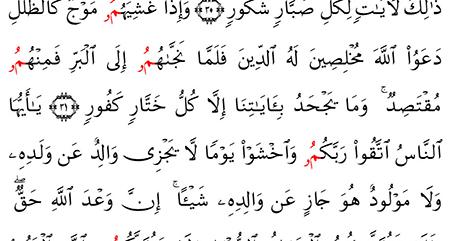 ذَٰلِكَ لَأٓيَٰتٖ لِّكُلِّ صَبَّارٖ شَكُورٖ ۝٣٠ وَإِذَا غَشِيَهُمُۥ مَوۡجٞ كَٱلظُّلَلِ
دَعَوُاْ ٱللَّهَ مُخۡلِصِينَ لَهُ ٱلدِّينَ فَلَمَّا نَجَّىٰهُمُۥ إِلَى ٱلۡبَرِّ فَمِنۡهُمُۥ
مُقۡتَصِدٞۚ وَمَا يَجۡحَدُ بِـَٔايَٰتِنَا إِلَّا كُلُّ خَتَّارٖ كَفُورٖ ۝٣١ يَـٰٓأَيُّهَا
ٱلنَّاسُ ٱتَّقُواْ رَبَّكُمُۥ وَٱخۡشَوۡاْ يَوۡمٗا لَّا يَجۡزِي وَالِدٌ عَن وَلَدِهِۦ
وَلَا مَوۡلُودٌ هُوَ جَازٍ عَن وَالِدِهِۦ شَيۡـًٔاۚ إِنَّ وَعۡدَ ٱللَّهِ حَقّٞۖ